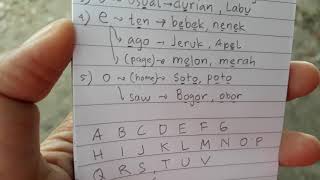 usual → durian, Labu
4) e ~ ten → bebek, nenek
ago → Jeruk, Apel
(page) → melon, merah
5) o ~ (home) → Soto, poto
saw → Bogor, obor
A B C D E F G
H I J K L M N O P
Q R S, T U V